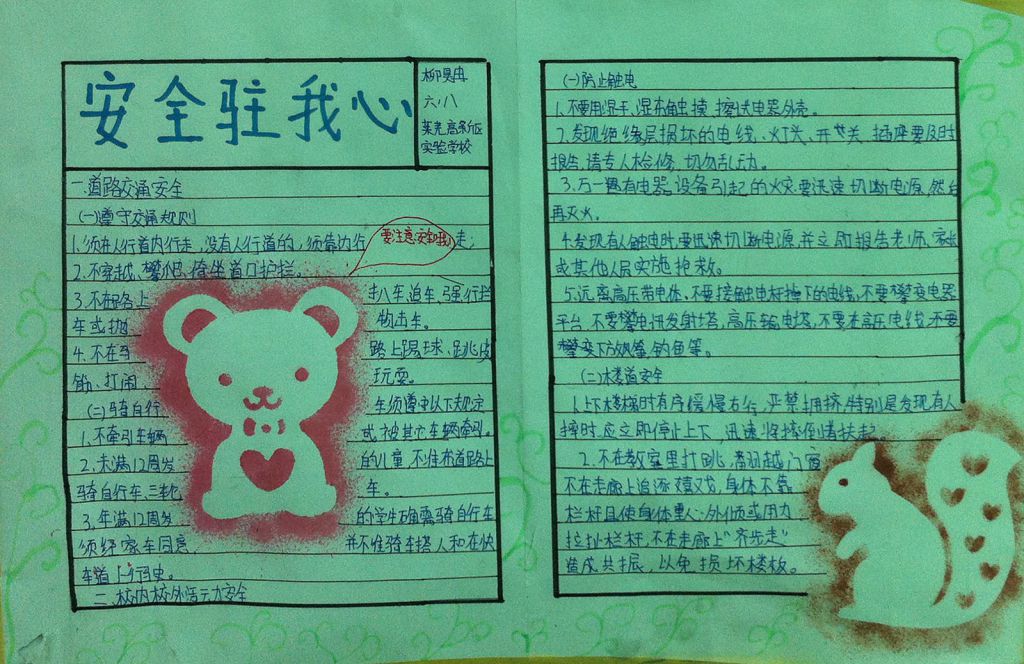 安全驻我心
柳昊冉
六·八
莱芜高新区
实验学校
一.道路交通安全
(一)遵守交通规则
1.须在人行道内行走,没有人行道的,须靠边行走;
要注意安全哦!
2.不穿越、攀爬、倚坐道口护栏。
3.不在路上扒车、追车、强行拦
车或抛物击车。
4.不在道路上踢球、跳皮
筋、打闹、玩耍。
(二)骑自行车须遵守以下规定
1.不牵引车辆或被其它车辆牵引。
2.未满12周岁的儿童,不准在道路上
骑自行车、三轮车。
3.年满12周岁的学生确需骑自行车
须经家长同意,并不准骑车搭人和在快
车道上行驶。
二.校内校外活动安全
(一)防止触电
1.不要用湿手、湿布触摸、擦拭电器外壳。
2.发现绝缘层损坏的电线、灯头、开关、插座要及时
报告,请专人检修,切勿乱动。
3.万一遇有电器设备引起的火灾,要迅速切断电源,然后
再灭火。
4.发现有人触电时,要迅速切断电源,并立即报告老师、家长
或其他人员实施抢救。
5.远离高压带电体,不要接触电杆掉下的电线,不要攀变电器
平台,不要攀电讯发射塔,高压输电塔,不要在高压电线
下放风筝、钓鱼等。
(二)楼道安全
1.上下楼梯时有序缓慢右行,严禁拥挤,特别是发现有人
摔时,应立即停止上下,迅速将摔倒者扶起。
2.不在教室里打跳,翻越门窗
不在走廊上追逐嬉戏,身体不靠
栏杆且使身体重心外倾或用力
拉扯栏杆,不在走廊上"齐步走"
造成共振,以免损坏楼板。